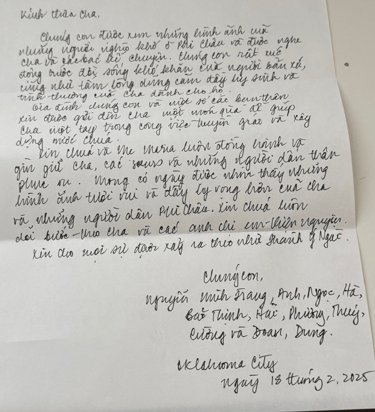 Kính thưa Cha,
Chúng con được xem những hình ảnh của
những người nghèo khổ ở Phi Châu và được nghe
cha và các bác kể chuyện. Chúng con rất xúc
động trước đời sống khó khăn của người bản xứ,
cũng như tấm lòng dũng cảm đầy hy sinh và
tình thương của cha dành cho họ.
Gia đình chúng con và một số các bạn thân
xin được gửi đến cha một món quà để giúp
cha một tay trong công việc truyền giáo và xây
dựng nước Chúa.
Xin Chúa và Mẹ Maria luôn đồng hành và
gìn giữ cha, các sours và những người dân thân
Phúc âm. Mong có ngày được nhìn thấy những
hình ảnh tươi vui và đầy hy vọng hơn của cha
và những người dân Phi Châu. Xin Chúa luôn
dõi bước theo cha và các anh chị em thiện nguyện.
Xin cho mọi sự được xảy ra theo như Thánh Ý Ngài.
Chúng con,
Nguyễn Minh Trang, Anh, Ngọc, Hà,
Bảo Thịnh, Hải, Phương, Thúy,
Cường và Đoan, Dung.
Oklahoma City
Ngày 18 tháng 2, 2025